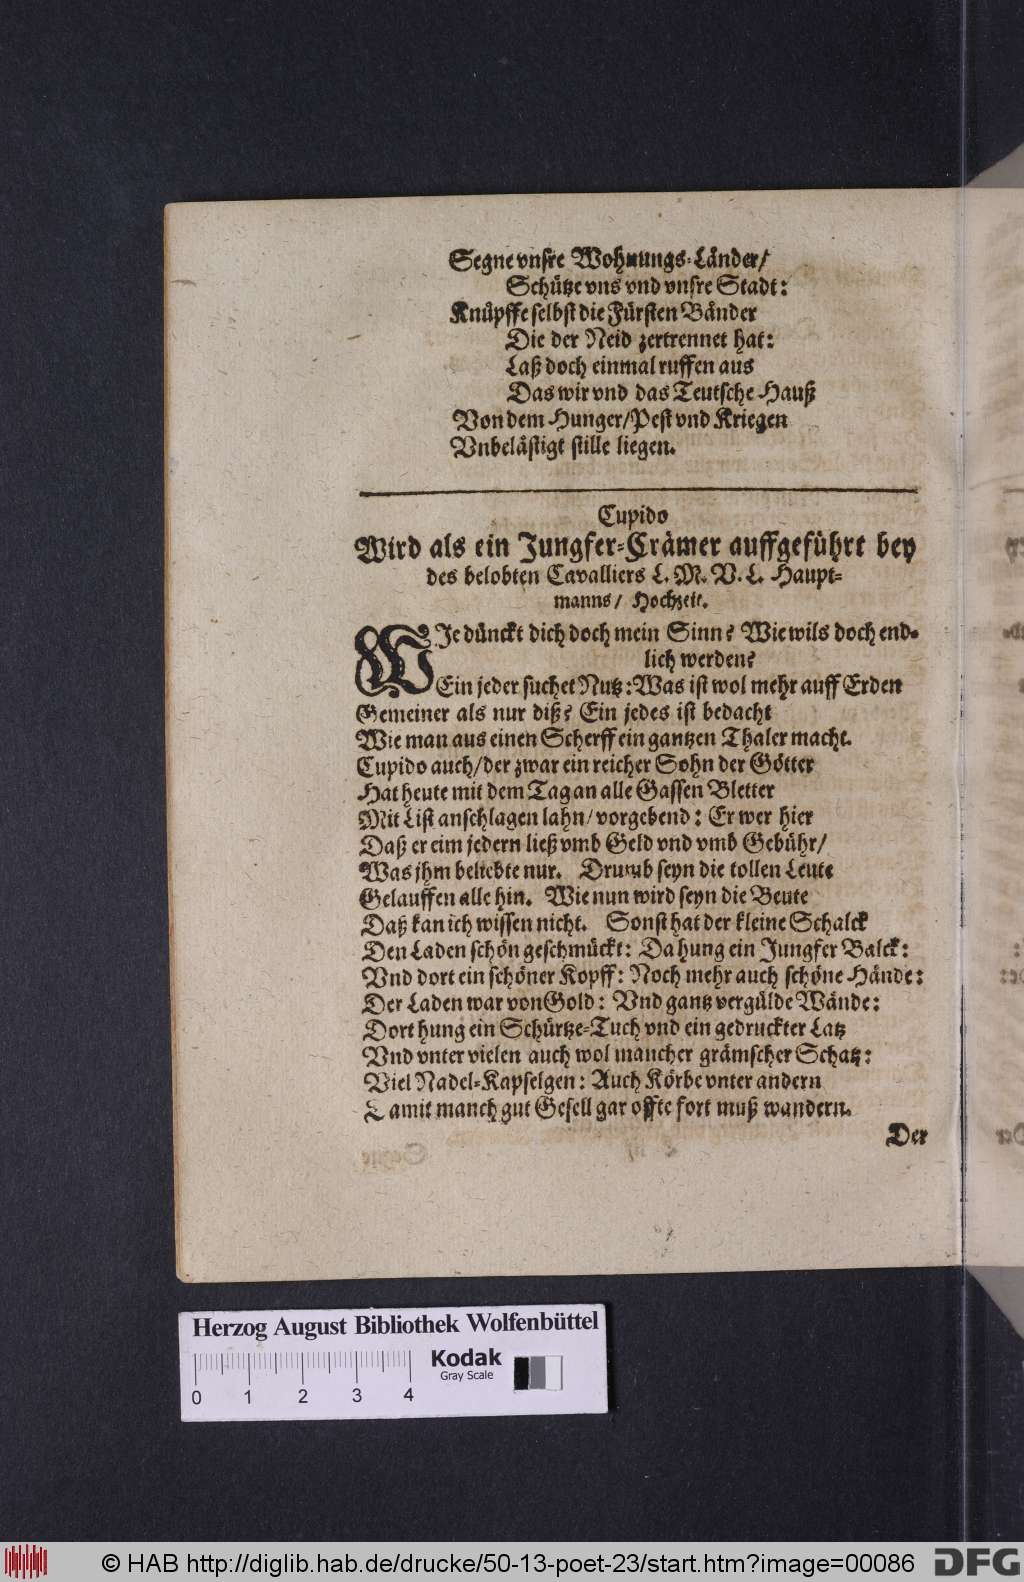 Segne vnsre Wohnungs-Länder/
Schütze vns vnd vnsre Stadt:
Knüpffe selbst die Fürsten Bänder
Die der Neid zertrennet hat:
Laß doch einmal ruffen aus
Das wir vnd das Teutsche Hauß
Von dem Hunger/Pest vnd Kriegen
Vnbelästigt stille liegen.
Cupido
Wird als ein Jungfer-Crämer auffgeführt bey
des belobten Cavalliers L. M. V. L. Haupt-
manns/ Hochzeit.
WJe dünckt dich doch mein Sinn? Wie wils doch end-
lich werden?
Ein jeder suchet Nutz: Was ist wol mehr auff Erden
Gemeiner als nur diß? Ein jedes ist bedacht
Wie man aus einen Scherff ein gantzen Thaler macht.
Cupido auch/der zwar ein reicher Sohn der Götter
Hat heute mit dem Tag an alle Gassen Bletter
Mit List anschlagen lahn/vorgebend: Er wer hier
Daß er eim jedern ließ vmb Geld vnd vmb Gebühr/
Was jhm beliebte nur. Drumb seyn die tollen Leute
Gelauffen alle hin. Wie nun wird seyn die Beute
Daß kan ich wissen nicht. Sonst hat der kleine Schalck
Den Laden schön geschmückt: Da hung ein Jungfer Balck:
Vnd dort ein schöner Kopff: Noch mehr auch schöne Hände:
Der Laden war von Gold: Vnd gantz vergülde Wände:
Dort hung ein Schürtze-Tuch vnd ein gedruckter Latz
Vnd vnter vielen auch wol mancher grämscher Schatz:
Viel Nadel-Kapselgen: Auch Körbe vnter andern
Damit manch gut Gesell gar offte fort muß wandern.
Der
Herzog August Bibliothek Wolfenbüttel
Kodak
Gray Scale
0 1 2 3 4
© HAB http://diglib.hab.de/drucke/50-13-poet-23/start.htm?image=00086
DFG